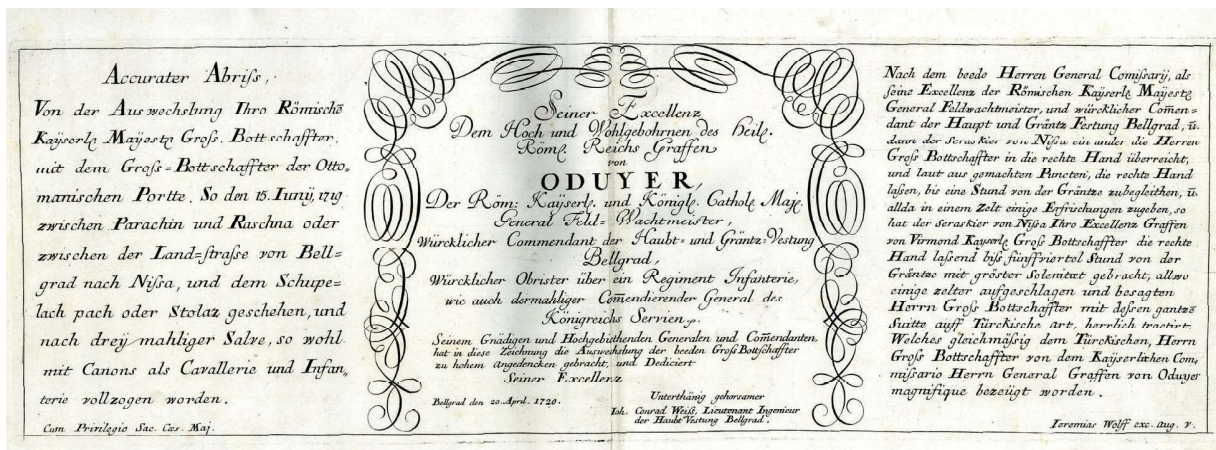 Accurater Abriſs,
Von der Auswechslung Ihro Römischē
Kaÿserle Maÿeste Groſs. Bottschaffter,
mit dem Groſs=Bottschaffter der Otto„
manischen Portte. So den 15. Iunÿ, 1719
zwischen Parachin und Raschna oder
zwischen der Land=ſtraſse von Bell=
grad nach Niſsa, und dem Schupe=
lach pach oder Stolaz geschehen, und
nach dreÿ mahliger Salve, so wohl
mit Canons als Cavallerie und Infan„
terie vollzogen worden.
Cum Privilegio Sac. Cæs. Maj.
Seiner Excellenz
Dem Hoch und Wohlgebohrnen des Heile.
Röme. Reichs Graffen
von
ODUYER,
Der Röm: Kaÿserle. und Königle. Cathole Maje.
General Feld=Wachtmeister,
Würcklicher Commendant der Haubt= und Gräntz=Vestung
Bellgrad,
Würcklicher Obrister über ein Regiment Infanterie,
wie auch dermahliger Com̄endierender General des
Königreichs Servien,
Seinem Gnädigen und Hochgebiethenden Generalen und Com̄endanten,
hat in diese Zeichnung die Auswechslung der beeden Groſs Bottschaffter
zu hohem Angedencken gebracht, und Dediciert
Seiner Excellenz
Bellgrad den 20. April. 1720.
Unterthänig gehorsamer
Ioh. Conrad Weiſs, Lieutenant Ingenieur
der Haubt Vestung Bellgrad.
Nach dem beede Herren General Comiſsarij, als
seine Excellenz der Römischen Kaÿserle Maÿeste
General Feldwachtmeister, und würcklicher Com̄en=
dant der Haupt und Gräntz Festung Bellgrad, ū.
dann der Seraskier von Niſsa ein ander die Herren
Groſs Bottschaffter in die rechte Hand überreicht,
und laut aus gemachten Puncten, die rechte Hand
laſsen, bis eine Stund von der Gräntze zubegleithen, ū.
allda in einem Zelt einige Erfrischungen zugeben, so
hat der Seraskier von Niſsa Ihro Excellenz Graffen
von Virmond Kaÿserle Groſs Bottschaffter die rechte
Hand laſsend biſs fünffviertel Stund von der
Gräntze mit gröster Solenitæt gebracht, allwo
einige zelter aufgeschlagen und besagten
Herrn Groſs Bottschaffter mit deſsen gantzē
Suitte auff Türckische art, herrlich tractirt.
Welches gleichmäſsig dem Türckischen, Herrn
Groſs Bottschaffter von dem Kaÿserlichen Com„
miſsario Herrn General Graffen von Oduyer
magnifique bezeügt worden.
Ieremias Wolff exc. Aug. V.